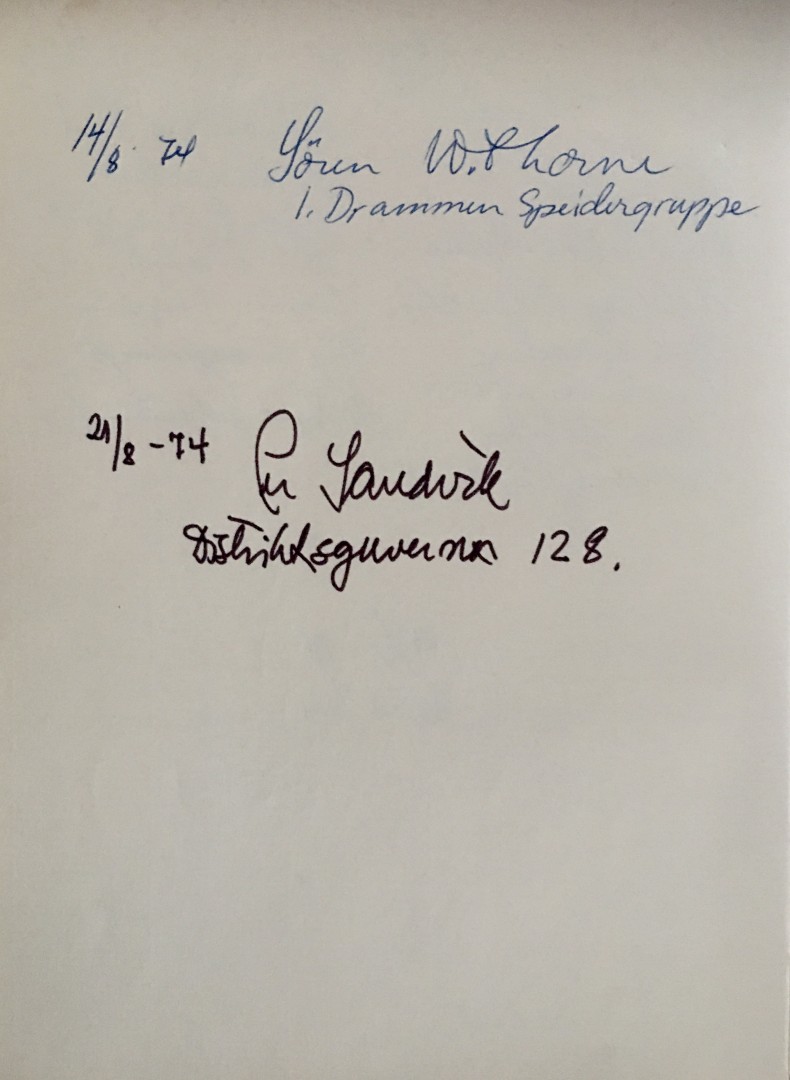 14/8 74 Sören W. Thorne
1. Drammen Speidergruppe
21/8 -74 Per Sandvik
Distriktsguvernør 128.